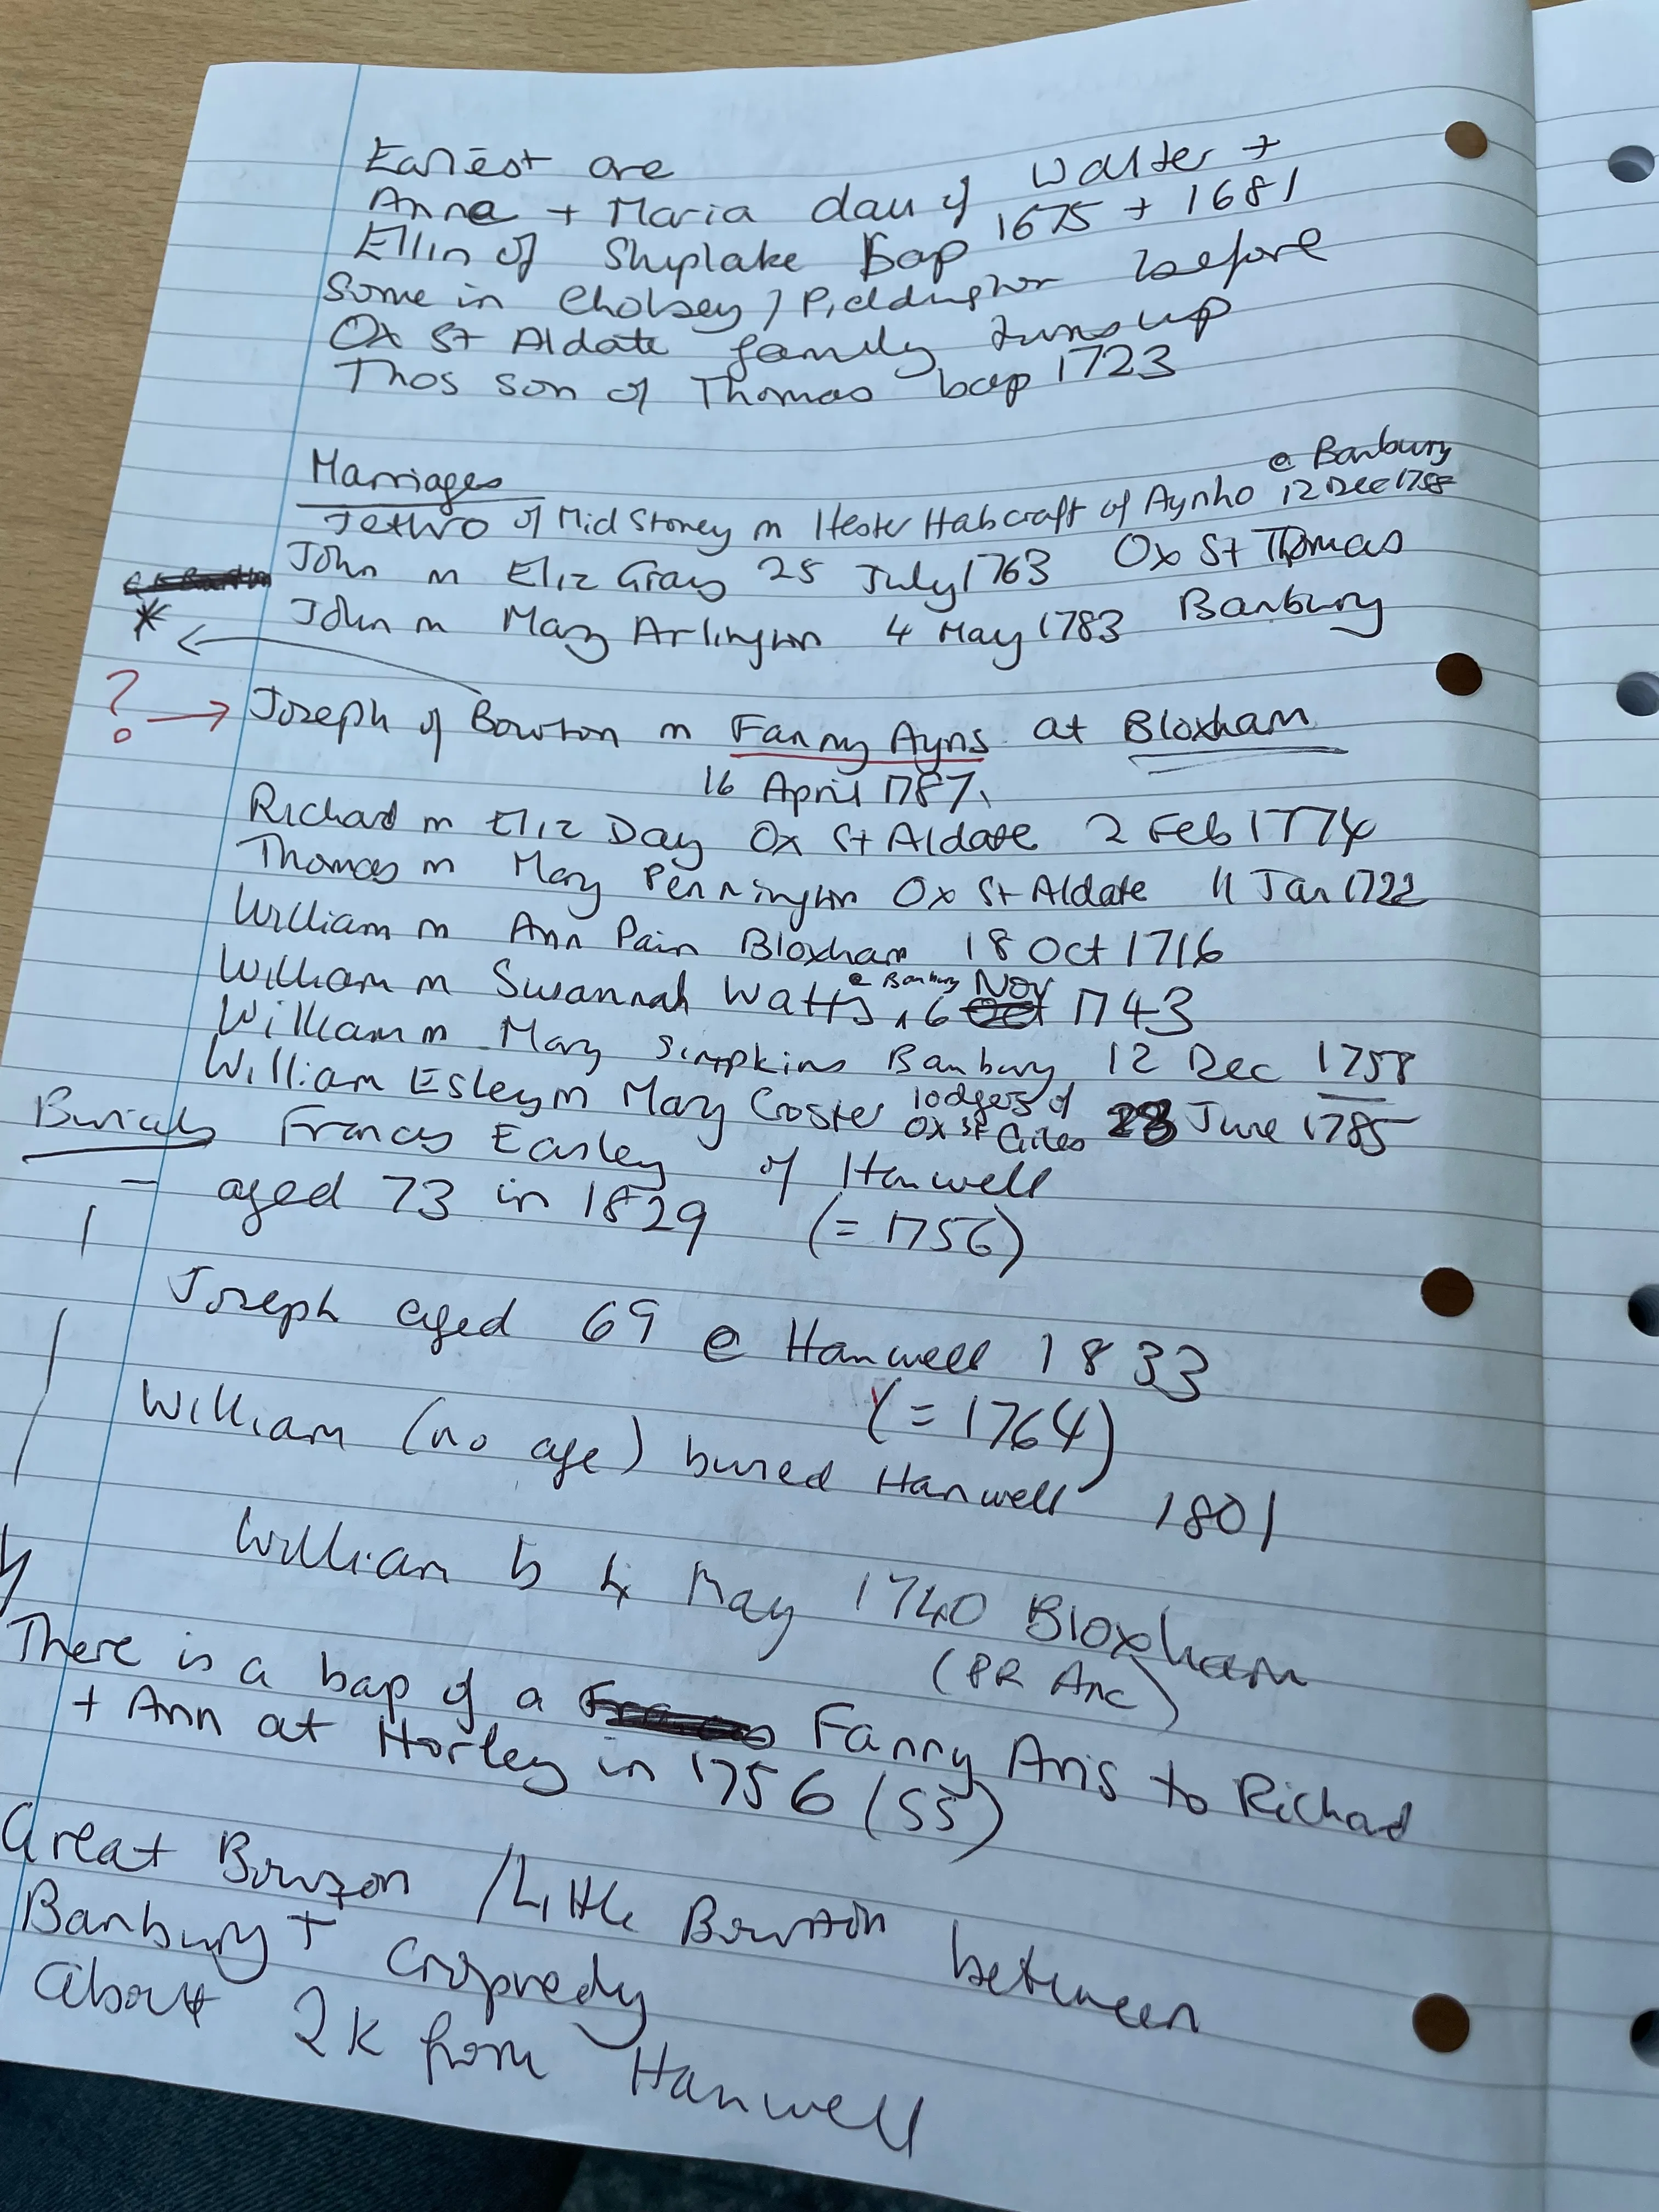 Earliest are
Anna + Maria dau of Walter +
Ellin of Shiplake bap 1675 + 1681
Some in Cholsey / Piddington before
Ox St Aldate family turns up
Thos son of Thomas bap 1723
Marriages
@ Banbury
Jethro of Mid Stoney m Hester Habcraft of Aynho 12 Dec 1758
John m Eliz Gray 25 July 1763 Ox St Thomas
* John m Mary Arlington 4 May 1783 Banbury
? → Joseph of Bourton m Fanny Ayns at Bloxham
16 April 1787.
Richard m Eliz Day Ox St Aldate 2 Feb 1774
Thomas m Mary Pennington Ox St Aldate 11 Jan 1722
William m Ann Pain Bloxham 18 Oct 1716
William m Susannah Watts @ Banbury 6 Nov 1743
William m Mary Simpkins Banbury 12 Dec 1758
William Esley m Mary Coster lodgers of Ox St Giles 28 June 1785
Burials Frances Easley of Hanwell
- aged 73 in 1829 (= 1756)
Joseph aged 69 @ Hanwell 1833
(= 1764)
William (no age) buried Hanwell 1801
William b 4 May 1740 Bloxham
(PR Anc)
There is a bap of a Fanny Aris to Richard
+ Ann at Horley in 1756 (55)
Great Bourton / Little Bourton between
Banbury + Cropredy
about 2k from Hanwell